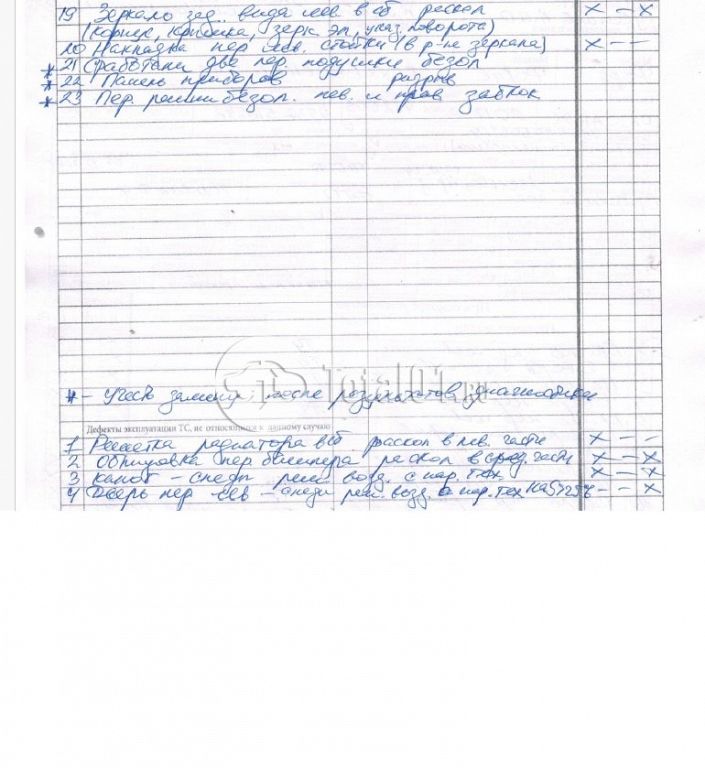 19 Зеркало зад. вида лев. в сб раскол х – х
(корпус, крышка, зерк. эл, указ. поворота)
20 Накладка пер лев. стойки (в р-не зеркала) х – –
* 21 Сработали две пер. подушки безоп
* 22 Панель приборов разрыв
* 23 Пер. ремни безоп. лев. и прав
* – после результатов диагностики
TotalO1.ru
Дефекты эксплуатации ТС, не относящиеся к данному случаю
1 Решетка радиатора в сб раскол в лев. части х – –
2 Облицовка пер бампера раскол в сред. части х – х
3 Капот – следы рем возд. с нар. тех х – х
4 Дверь пер лев – следы рем. возд. с нар. тех – – х